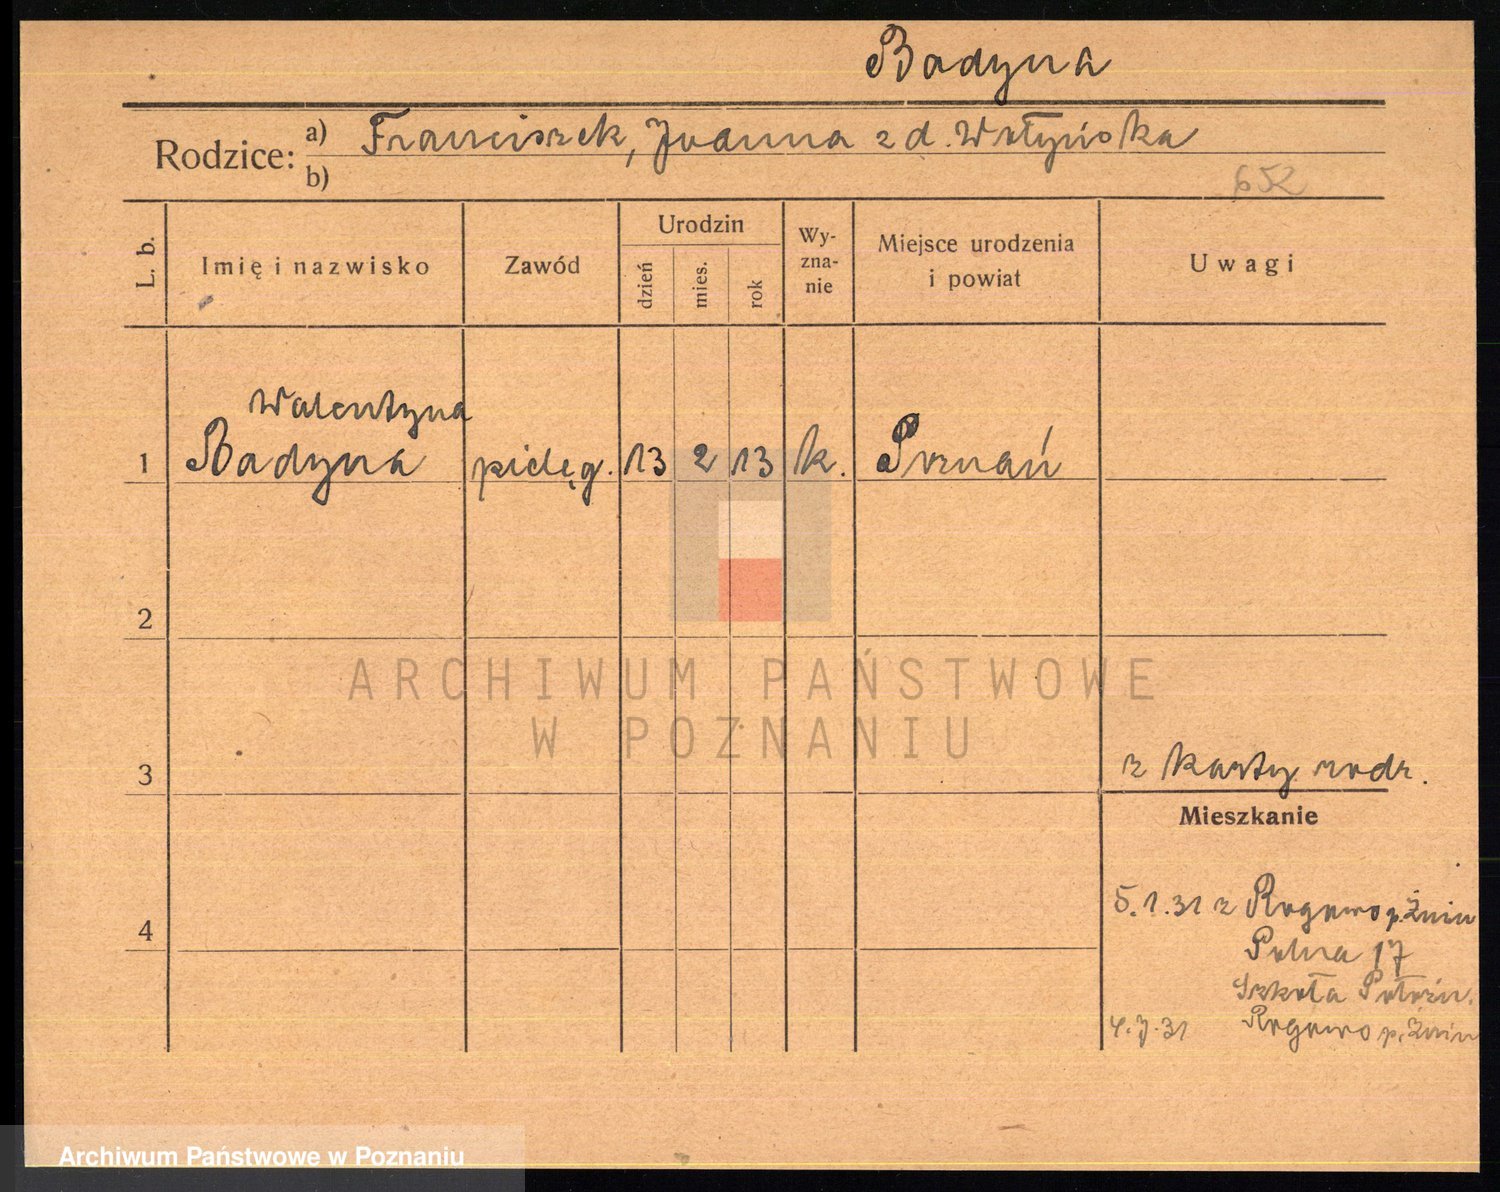 Badyna
Rodzice: a) Franciszek, Joanna z d. Wołyńska
b)
652
L. b. Imię i nazwisko Zawód Urodzin dzień mies. rok Wy-zna-nie Miejsce urodzenia i powiat Uwagi
Walentyna
1 Badyna pielęg. 13 2 13 k. Poznań
2
ARCHIWUM PAŃSTWOWE
W POZNANIU
3 z karty rodz.
Mieszkanie
5.1.31 z Rogowo p. Żnin
4
Polna 17
Szkoła Położn.
4.7.31 Rogowo p. Żnin
Archiwum Państwowe w Poznaniu